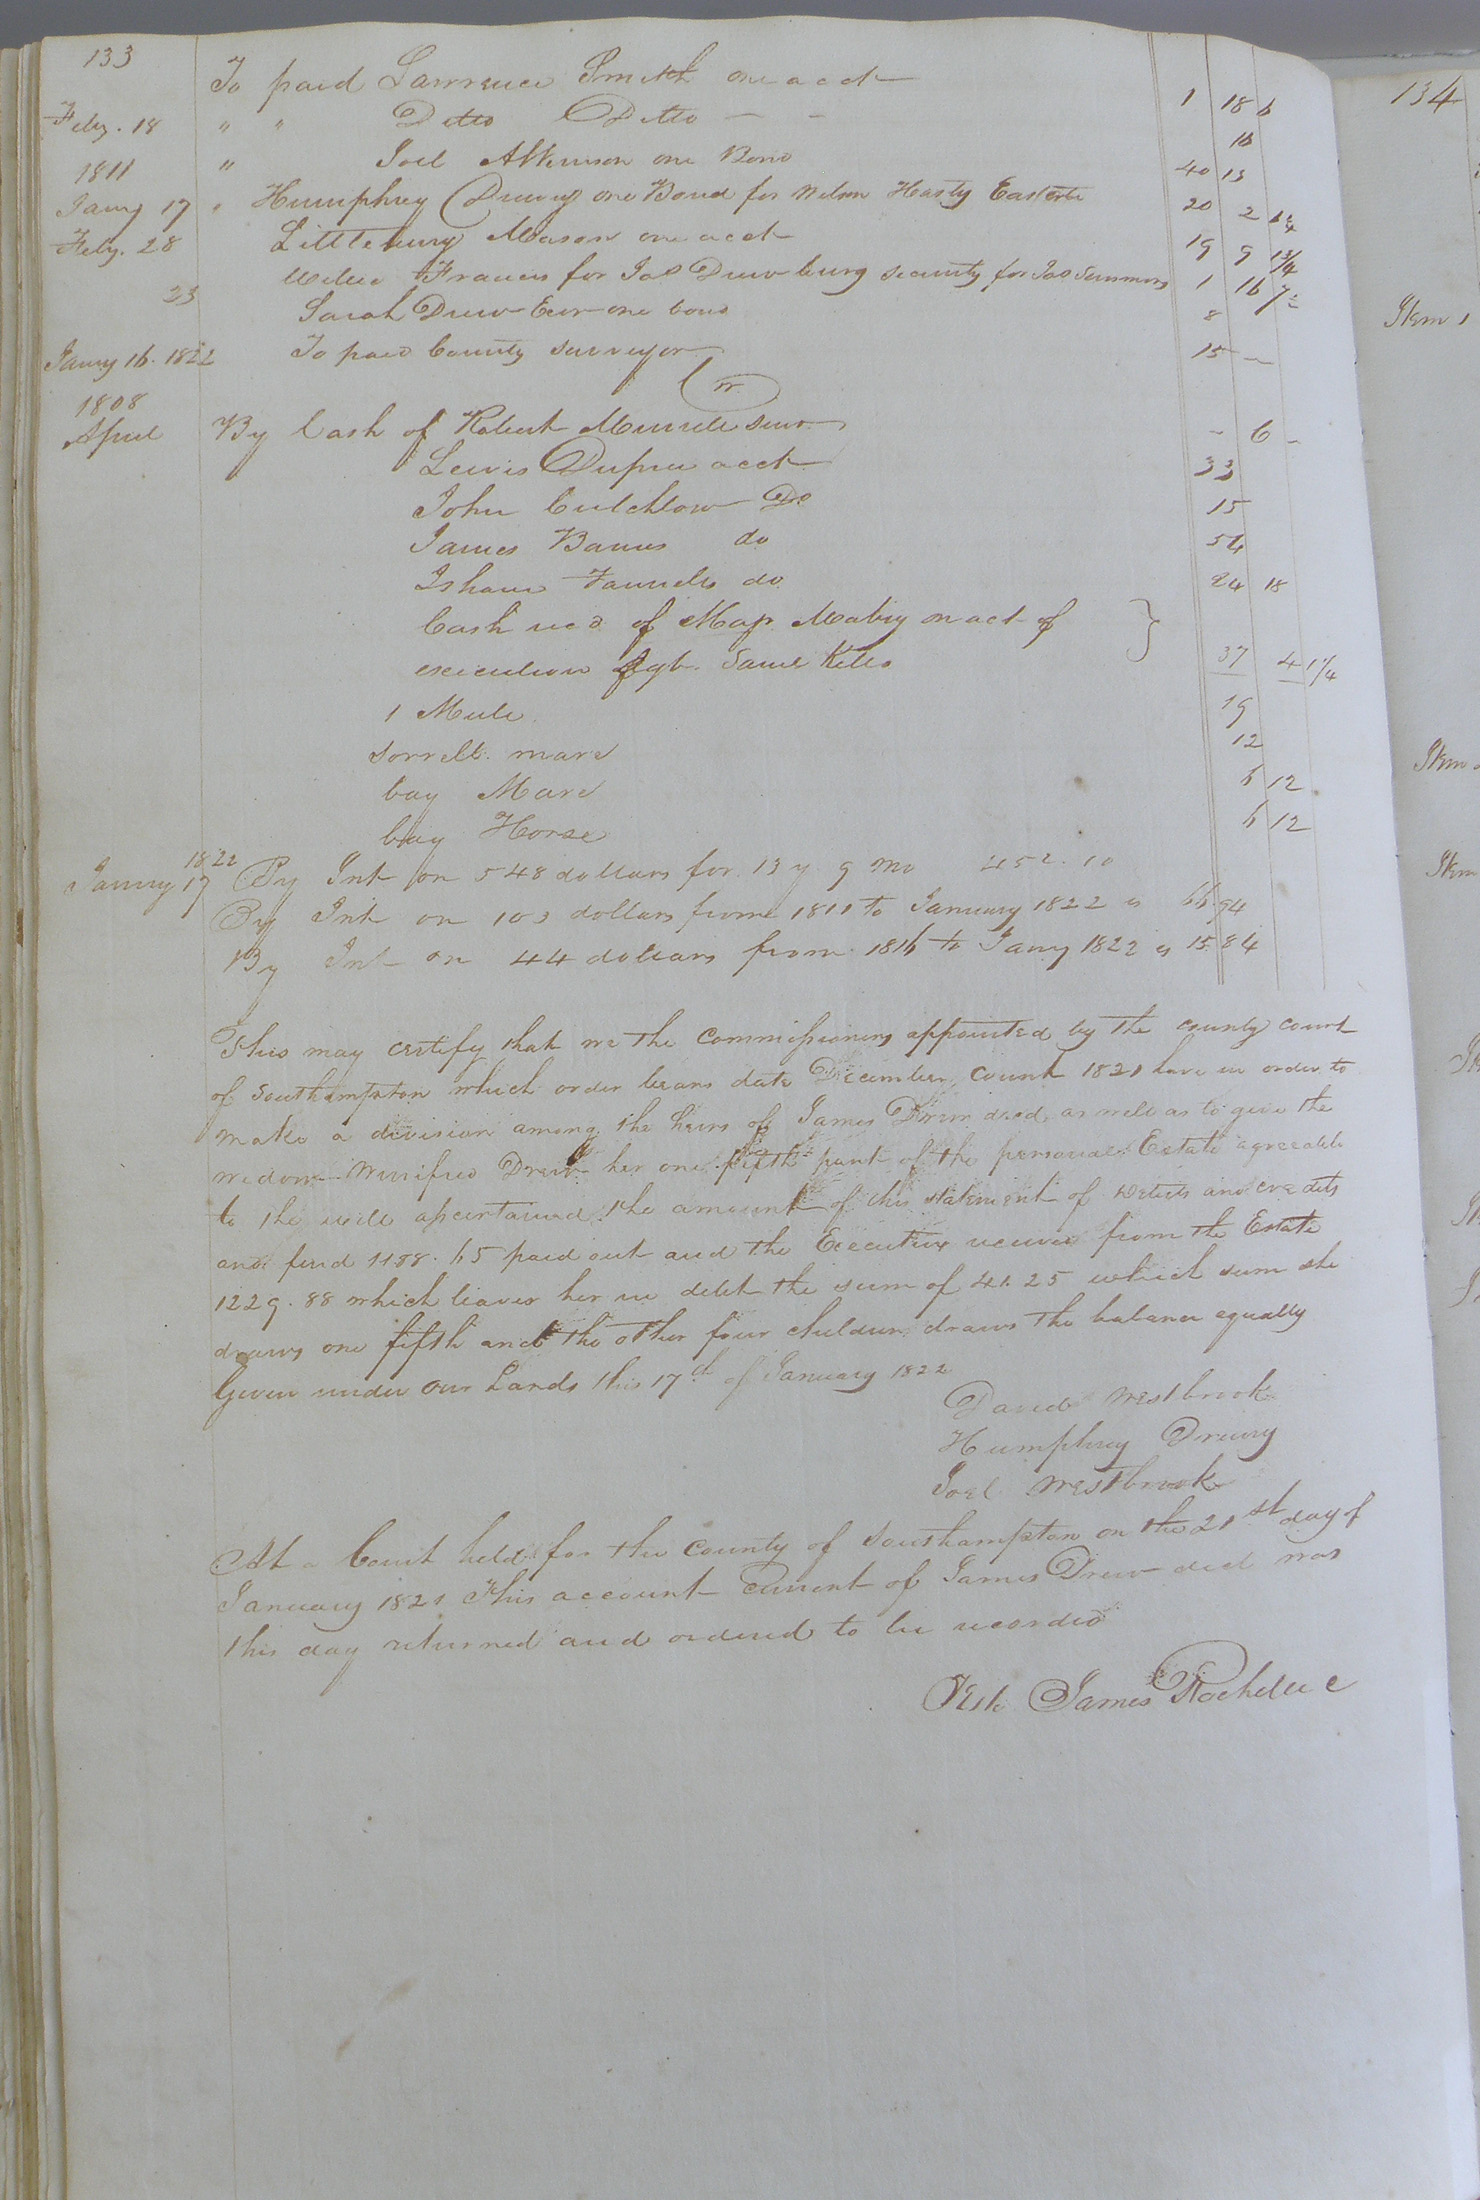 133
To paid Lawrence Smith one acct 1 18 6
Feby. 18 " " Ditto Ditto — — 16
1811 " Joel Atkinson one Bond 40 13
Jany 17 " Humphrey Drewry one Bond for Hasty Eastate 20 2
Feby. 28 Littlebury Mason one acct 19 9
Francis for Jas Drew being security for Jas Summers 1 16
23 Sarah Drew Exr one bond 8
Jany 16. 1822 To paid County surveyor 15 —
Cr
1808
April By Cash of Robert senr - 6 -
Lewis Dupree acct 33
John Do 15
James Barnes do 54
Isham do 24 18
Cash recd of Mabry on act of }
execution agt. Kello 37 4 1 1/4
1 Mule 19
sorrell mare 12
bay Mare 6 12
bay Horse 6 12
1822
Janury 17 By Int on 548 dollars for 13 y 9 Mo 452.10
By Int on 103 dollars frome 1811 to January 1822 is 66.94
By Int on 44 dollars from 1816 to Jany 1822 is 15.84
This may certify that we the Commissioners appointed by the county court
of Southampton which order bears date December Count 1821 have in order to
make a division among the heirs of James Drew decd, as well as to give the
widow Winifred Drew her one fifth part of the personal Estate agreeable
to the will ascertained the amount of this statement of Debits and credits
and find 1188.65 paid out and the Executrix receives from the Estate
1229.88 which leaves her in debt the sum of 41.25 which sum she
draws one fifth and the other four children draws the balance equally
Given under our hands this 17th of January 1822
David Westbrook
Humphrey Drewry
Joel Westbrook
At a Court held for the County of Southampton on the 21st day of
January 1821 This account Current of James Drew decd was
this day returned and ordered to be recorded
Teste James Rochelle C
134
Item 1
Item
Item